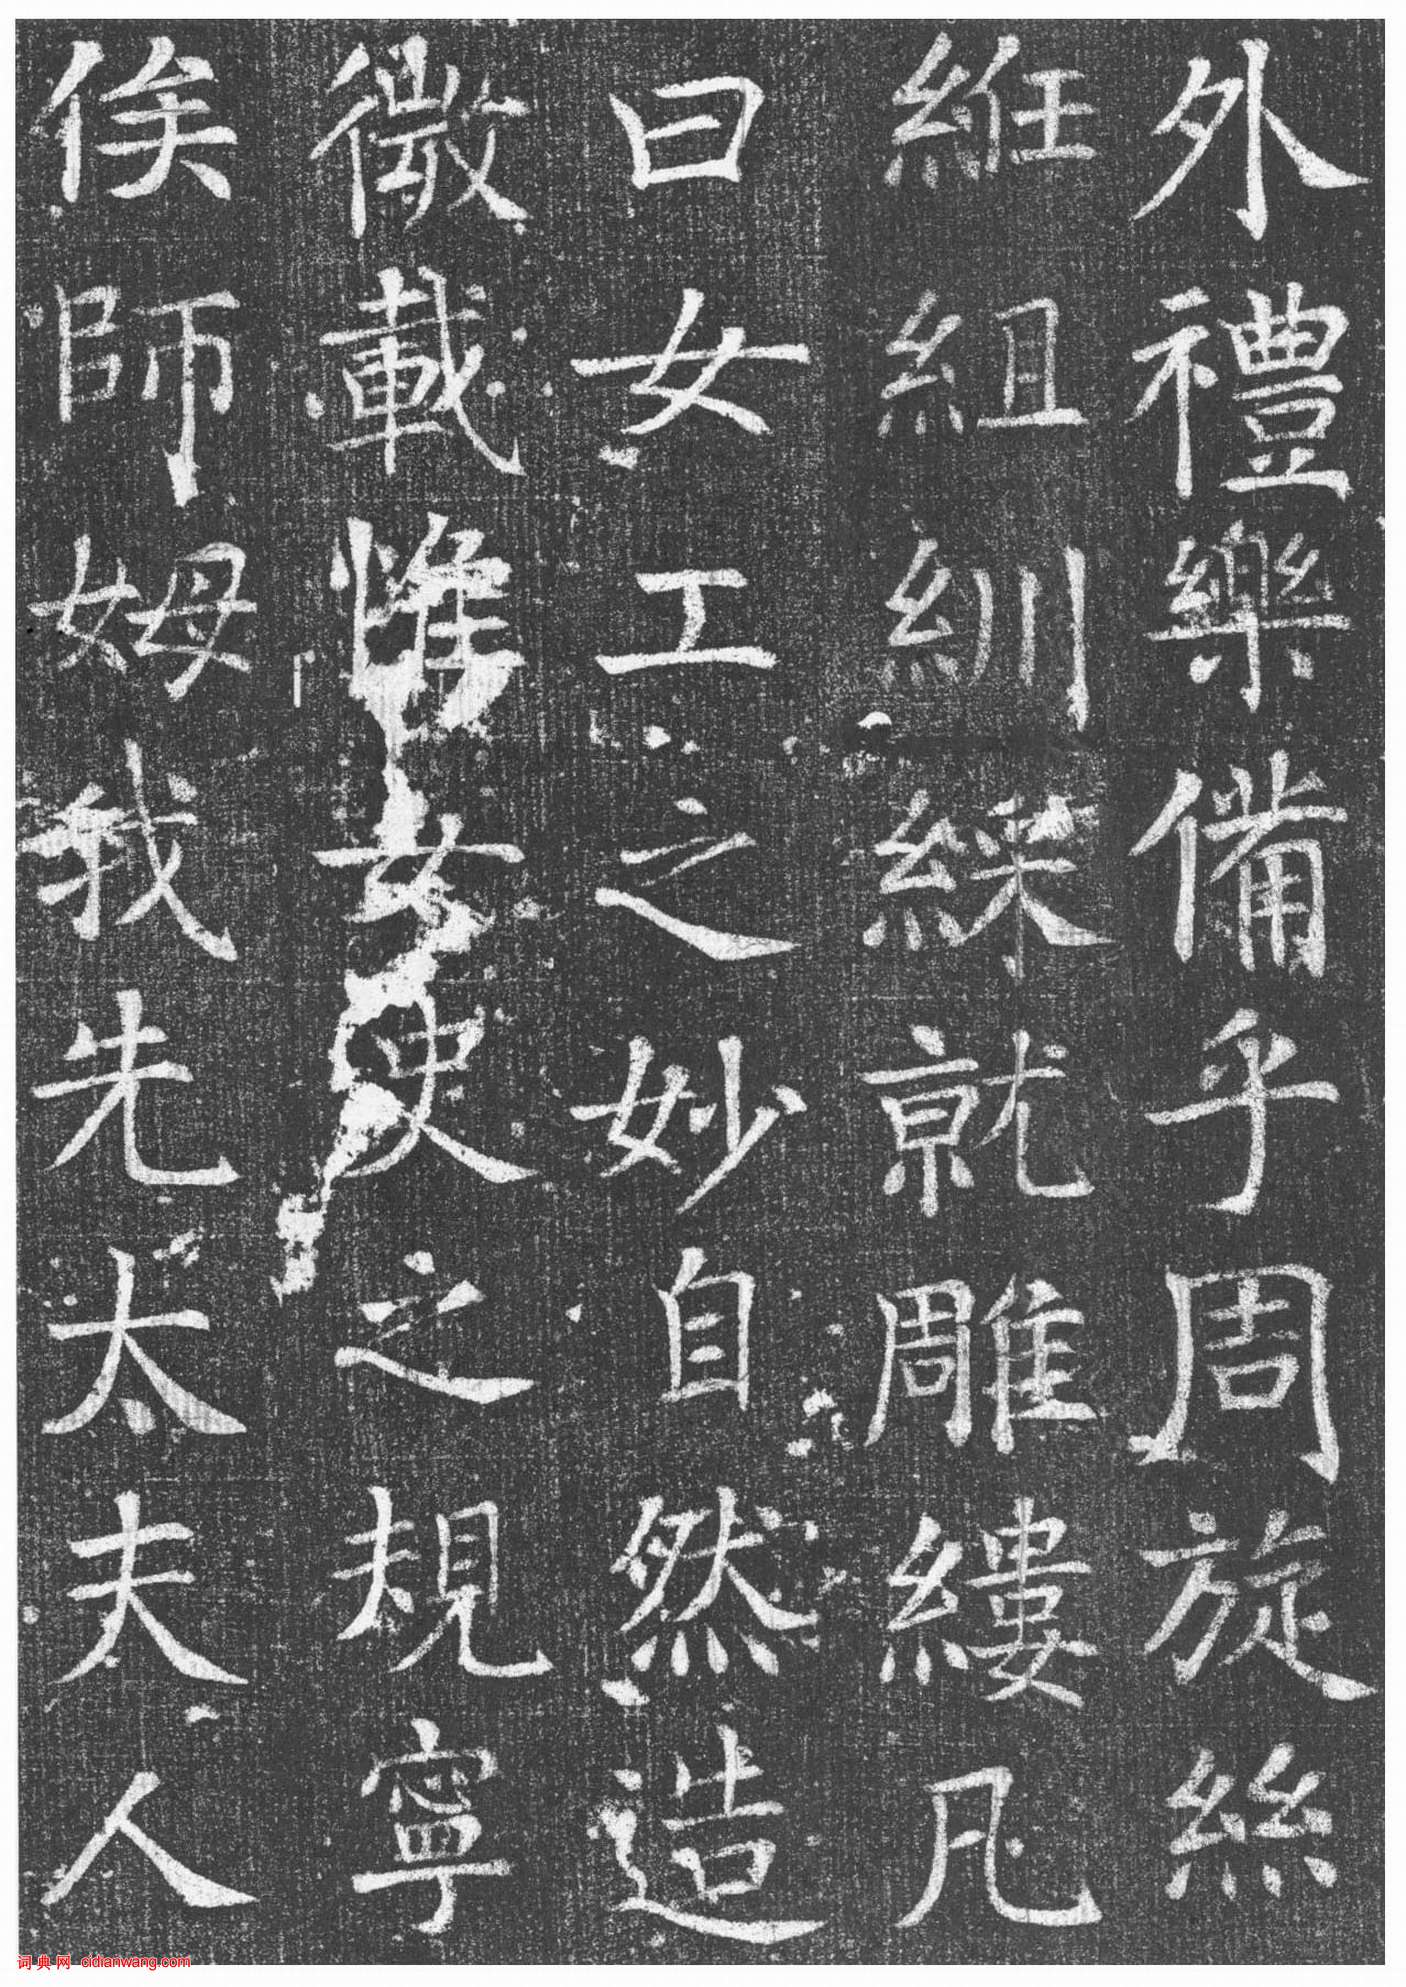 外禮樂備乎周旋絲
絍組紃綵就雕縷凡
曰女工之妙自然造
微載惟女史之規寧
俟師姆我先太夫人
词典网 cidianwang.com